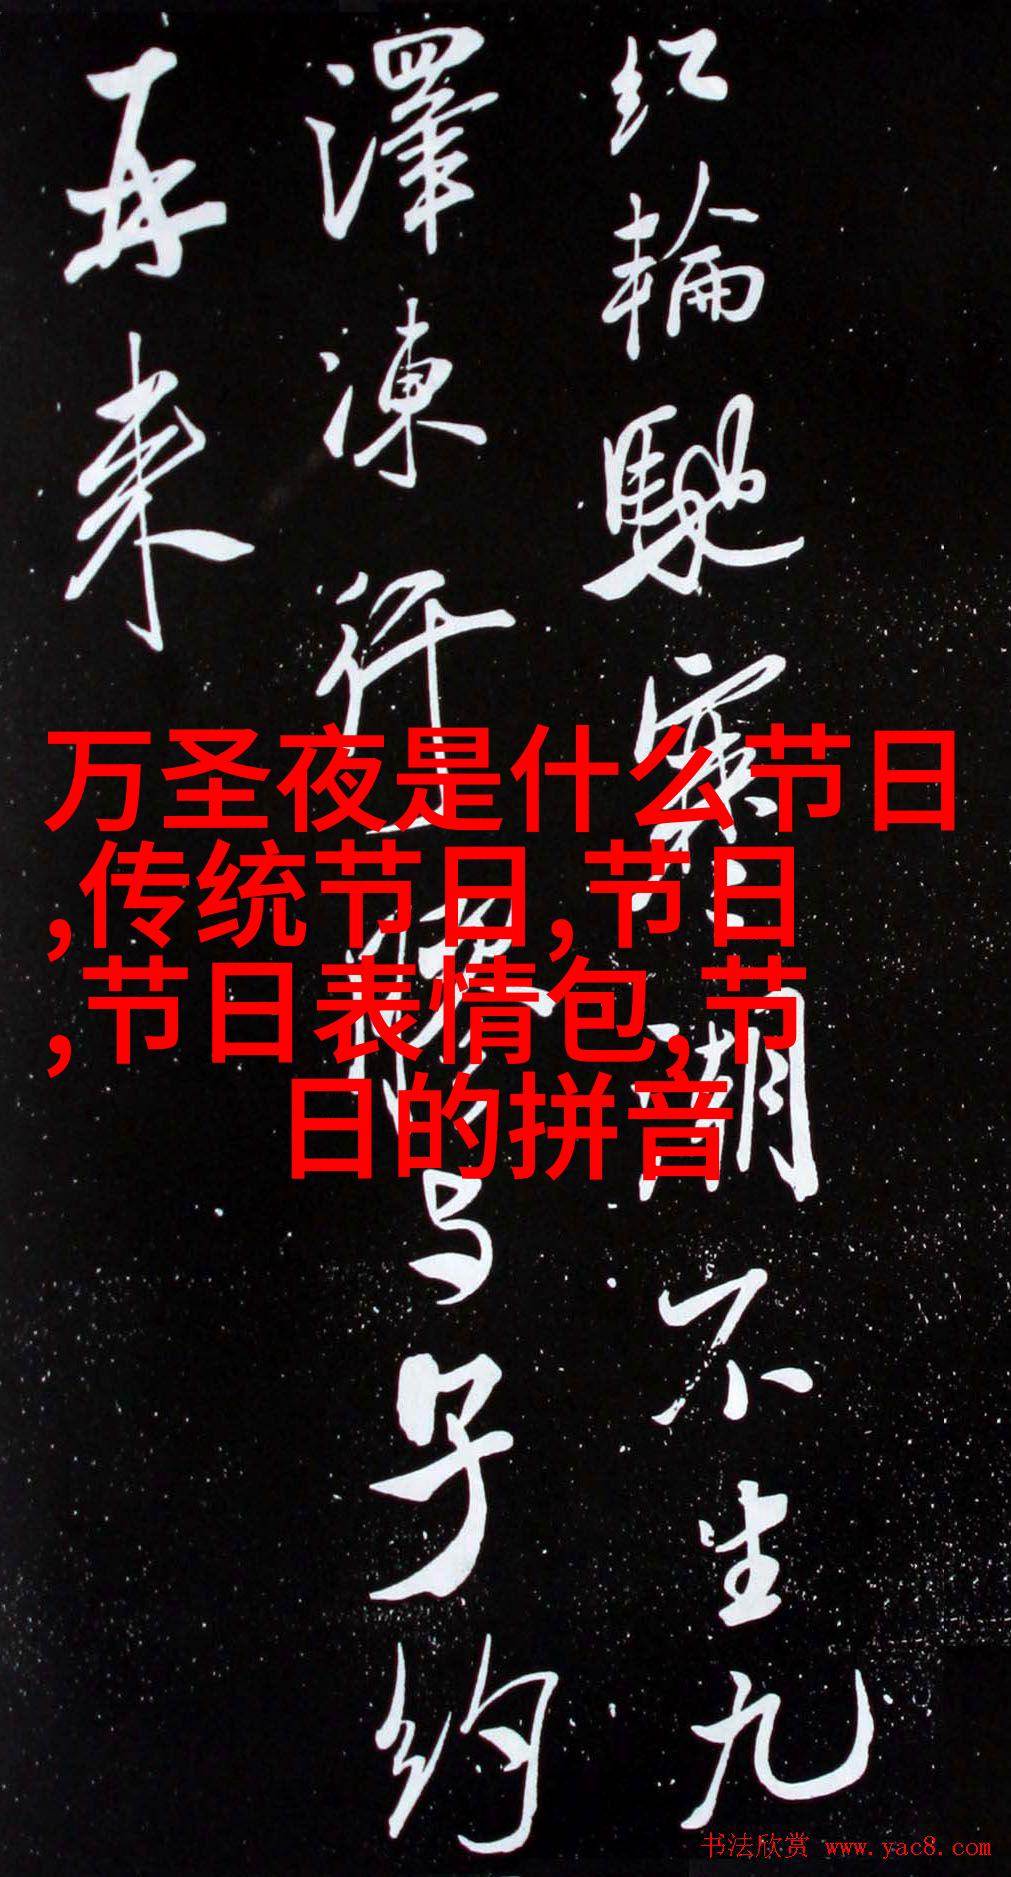 紅輪馳寒潮不生九
澤凍行暖与子約
再来
万圣夜是什么节日
,传统节日,节日
,节日表情包,节
日的拼音
书法欣赏 www.yac8.com